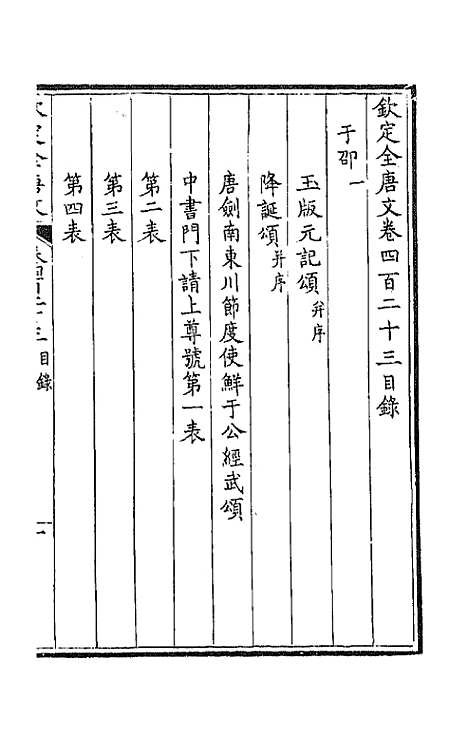 欽定全唐文卷四百二十三目錄
于邵一
玉版元記頌并序
降誕頌并序
唐劍南東川節度使鮮于公經武頌
中書門下請上尊號第一表
第二表
第三表
第四表
欽定全唐文
目錄
一